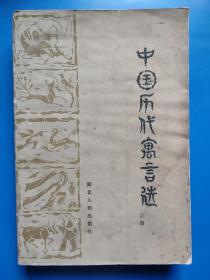 中国历代寓言选
上册
湖北人民出版社